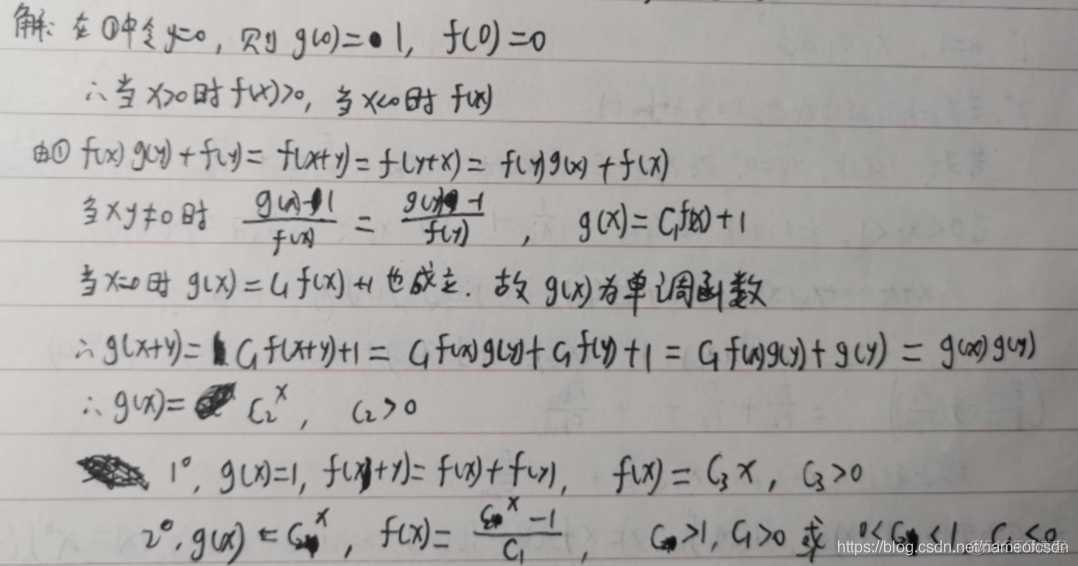 解: 在①中令y=0, 则g(0)=1, f(0)=0
∴当x>0时f(x)>0, 当x<0时 f(x)
由① f(x)g(y)+f(y)=f(x+y)=f(y+x)=f(y)g(x)+f(x)
当xy≠0时 (g(x)-1)/f(x) = (g(y)-1)/f(y), g(x)=C₁f(x)+1
当x=0时 g(x)=C₁f(x)+1也成立. 故g(x)为单调函数
∴g(x+y)=C₁f(x+y)+1=C₁f(x)g(y)+C₁f(y)+1=C₁f(x)g(y)+g(y)=g(x)g(y)
∴g(x)=C₂ˣ, C₂>0
1°, g(x)=1, f(x+y)=f(x)+f(y), f(x)=C₃x, C₃>0
2°. g(x)=Cˣ, f(x)=(Cˣ-1)/C₁, C>1, C₁>0 或 0<C<1, C₁<0
https://blog.csdn.net/nameofcsdn